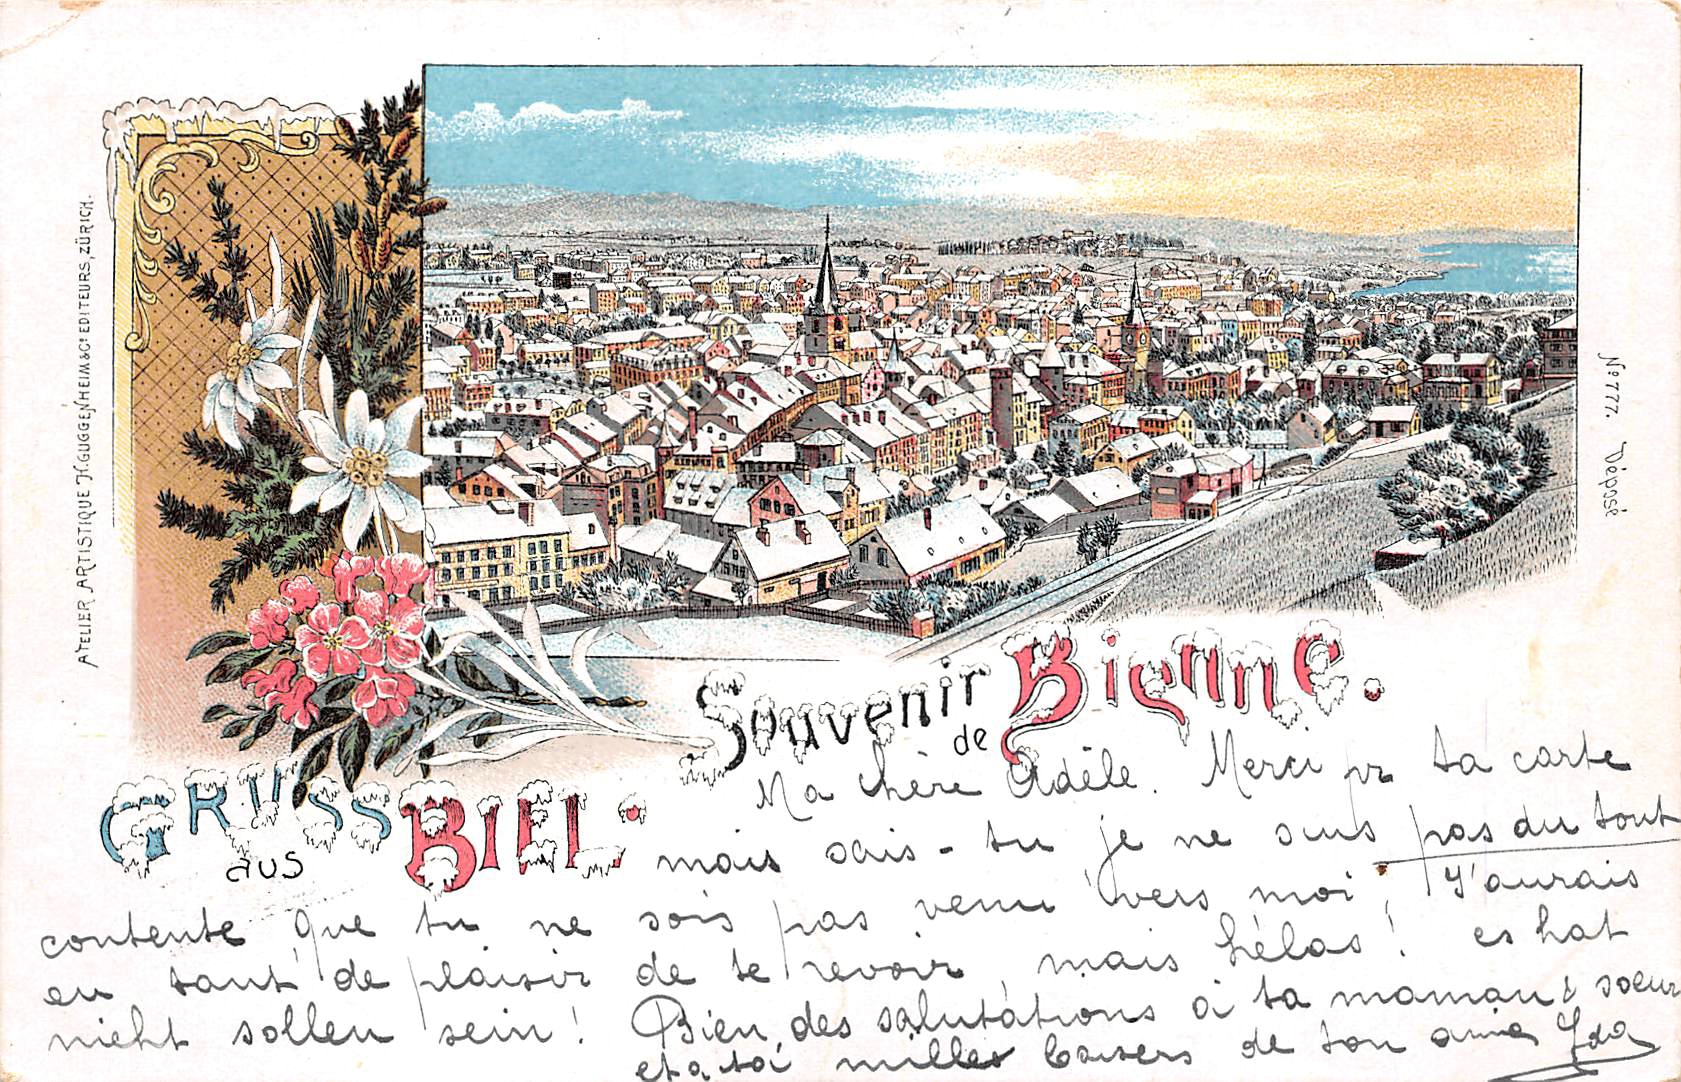 ATELIER ARTISTIQUE H. GUGGENHEIM & Cº EDITEURS, ZÜRICH.
Nº 777. Déposé
Souvenir
de
Bienne.
GRUSS
aus
BIEL.
Ma chère Adèle. Merci pr ta carte
mais sais-tu je ne suis pas du tout
contente que tu ne sois pas venu vers moi, J'aurais
eu tant de plaisir de te revoir, mais hélas! es hat
nicht sollen sein! Bien des salutations à ta maman & soeur
et à toi milles baisers de ton amie Ida